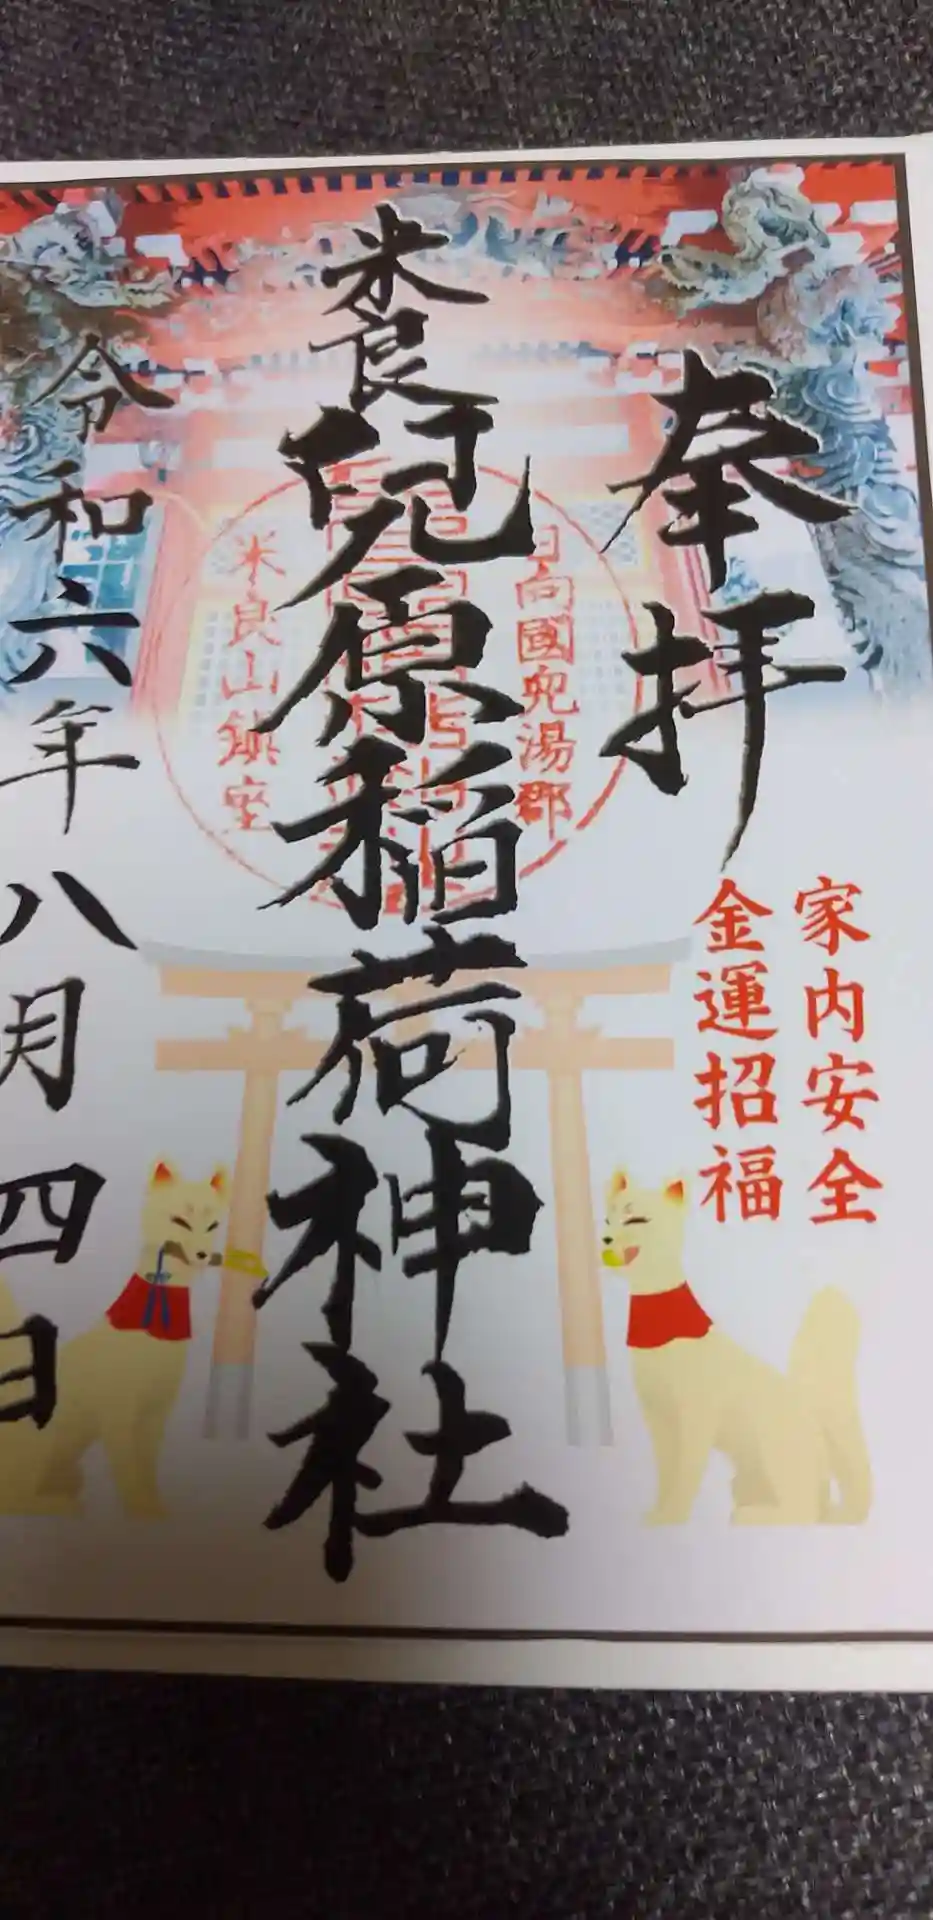 奉拝
家内安全
金運招福
日向國兒湯郡
米良
兒原稲荷神社
米良山鎮座
令和六年八月四日